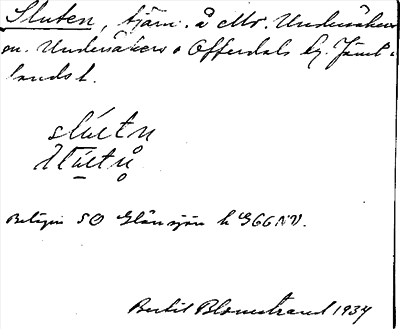 Sluten, tjärn. å Mr. Undersåkers
sn. Undersåkers o Offerdals tg. Jämt-
lands l.
slútn
Belägen SO Glänsjön k G66NV.
Bertil Blomstrand 1934